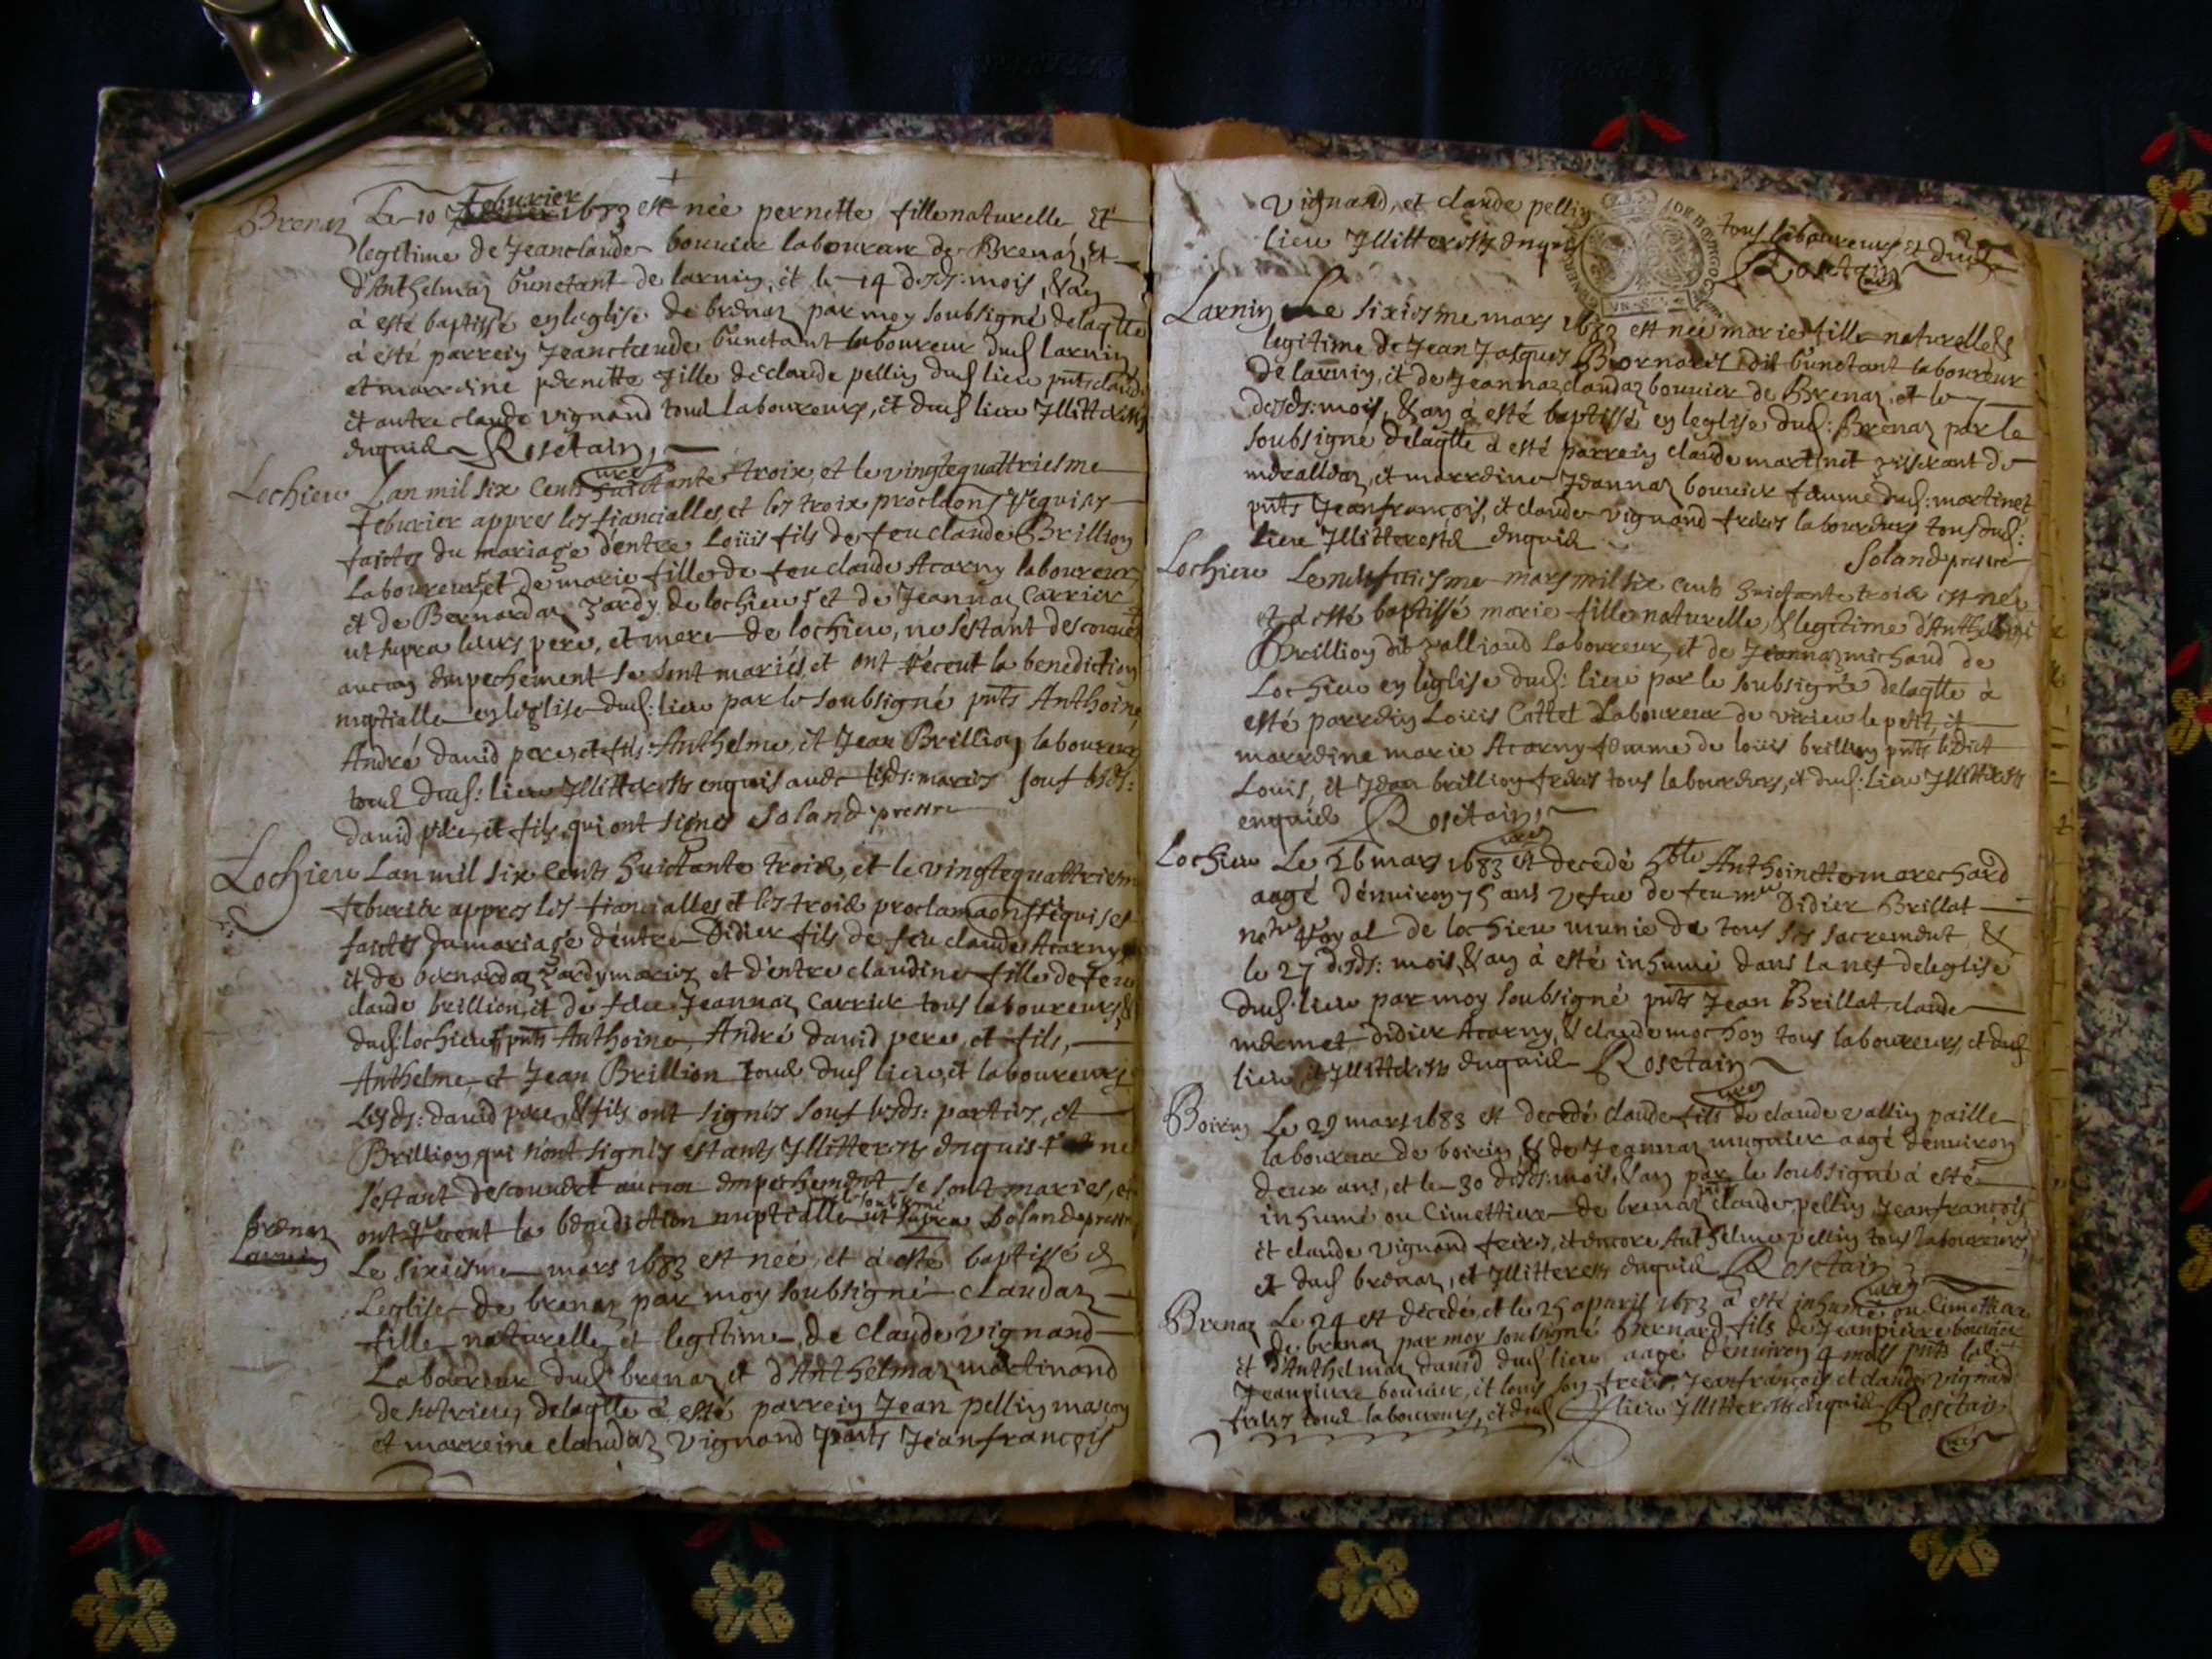 Brenaz Le 10 feburier 1683 est née pernette fille naturelle et
legitime de Jeanclaude bouvier laboureur de Brenaz, et
d'Anthelmaz bunetant de larnin, et le 14 desds: mois, & an
à esté baptissé en leglise de brenaz par moy soubsigné delaqlle
à esté parrein Jeanclaude bunetant laboureur dud larnin
et marreine pernette fille de claude pellin dud lieu pnts claude
et autre claude vignand tous laboureurs, et dud lieu Jllitterests
enquis Rosetain,
curé
Lochieu Lan mil six cents huictante troix, et le vingtequattriesme
feburier appres les fiancialles et les troix proclaons requises
faictes du mariage d'entre Loüis fils de feu claude Brillion
Laboureur et de marie fille de feu claude Acarny laboureur
et de Bernardaz Zardy de lochieu et de Jeannaz Carrier
ut supra leurs pere, et mere de lochieu, ne sestant descouvert
aucun empechement se sont mariés et ont réceut la benediction
nuptialle en leglise dud: lieu par le soubsigné pnts Anthoine,
André david pere, et fils Anthelme, et Jean Brillion laboureurs
tous dud: lieu Jllitterests enquis avec lesds: mariés souf lesds:
david pere, et fils, qui ont signes Soland prestre
Lochieu Lan mil six cents huictante troix, et le vingtequattriesme
feburier appres les fiancialles et les troix proclamaons réquises
faictes du mariage d'entre Didier fils de feu claude Acarny
et de bernardaz Zardy mariez et d'entre claudine fille de feu
claude brillion, et de feue Jeannaz Carrier tous laboureurs &
dud: lochieu, pnts Anthoine, André david pere, et fils,
Anthelme, et Jean Brillion tous dud lieu, et laboureurs
Lesds: david pere, & fils ont signés souf lesds: parties, et
Brillion qui n'ont signés estants Jllitterests enquis et ne
s'estant descouvert aucun empechement se sont maries, et
le soubsigné
ont récent la benediction nuptialle ut supra Soland prestre
brenaz
Larnin
Le sixiesme mars 1683 est née, et à esté baptissé en
Leglise de brenaz par moy soubsigné claudaz
fille naturelle, et legitime de claude vignand
Laboureur dud brenaz et d'Anthelmaz martinand
de sutrieu, delaqlle à esté parrein Jean pellin maçon
et marreine claudaz vignand pnts Jeanfrançois
Vignand, et claude pellin tous laboureurs, et dud
lieu Jllitterests enquis Rosetain
curé
Larnin Le sixiesme mars 1683 est née marie fille naturelle &
legitime de Jean Jasques Bornarel dit bunetant laboureur
de larnin, et de Jeannaz claudaz bouvier de Brenaz, et le 7
desds: mois, & an à esté baptissé en leglise dud: Brenaz par le
soubsigné delaqlle à esté parrein claude martinet
et marreine Jeannaz bouvier femme dud: martinet
pnts Jeanfrançois, et claude vignand freres laboureurs tous dud:
lieu Jllitterests enquis
Soland prestre
Lochieu Le mars mil six cents huictante troix est née
et à esté baptissé marie fille naturelle, & legitime d'Anthelme
Brillion dit valliand Laboureur, et de Jeannaz michaud de
Lochieu en leglise dud: lieu par le soubsigné delaqlle à
esté parrein Loüis Cattet Laboureur de virieu le petit, et
marreine marie Acarny femme de loüis brillion pnts ledict
Louis, et Jean brillion freres tous laboureurs, et dud: lieu Jllitterests
enquis Rosetain,
curé
Lochieu Le 26 mars 1683 est decedé hble Anthoinette marechard
aagé d'enuiron 75 ans vefue de feu mre Didier Brillat
nore Royal de lochieu munie de tous ses sacrement, &
le 27 desds: mois, & an à esté inhumé dans la nef deleglise
dud: lieu par moy soubsigné pnts Jean Brillat, claude
mermet, Didier Acarny, & claude mochon tous laboureurs, et dud
lieu Jllitterests enquis Rosetain
curé
Boirin Le 29 mars 1683 est decedé claude fils de claude vallin paille
laboureur de boirin, & de Jeannaz mugnier aagé d'enuiron
deux ans, et le 30 desds: mois, & an par le soubsigné à esté
inhumé ou Cimettiere de brenaz pnts claude pellin, Jeanfrançois
et claude vignand freres, et encore Anthelme pellin tous laboureurs,
et dud brenaz, et Jllitterests enquis Rosetain
curé
Brenaz Le 24 est decedé, et le 25 apvril 1683 à esté inhumé ou Cimettiere
de brenaz par moy soubsigné Bernard fils de Jeanpierre bouvier
et d'Anthelmaz david dud lieu aagé d'enuiron 4 mois pnts led:
Jeanpierre bouvier, et louis son frere, Jeanfrançois et claude vignand
freres tous laboureurs, et dud lieu Jllitterests enquis Rosetain
curé